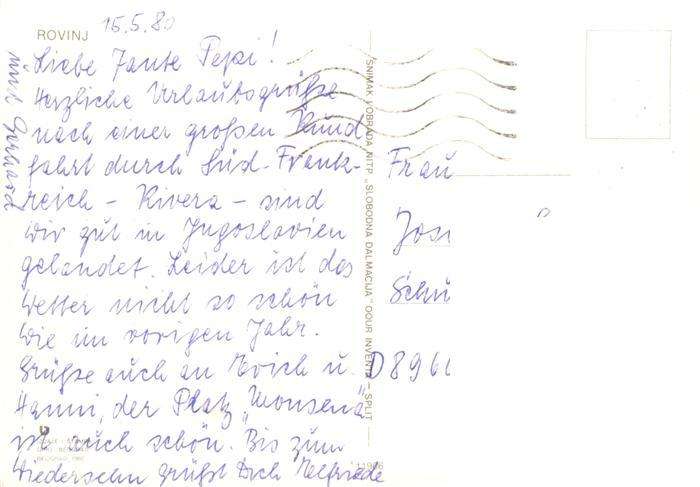 ROVINJ 15.5.80
Liebe Tante Pepi!
Herzliche Urlaubsgrüße
nach einer großen Rund
fahrt durch Süd-Frank-
reich - Rivera - sind
wir gut in Jugoslavien
gelandet. Leider ist das
Wetter nicht so schön
wie im vorigen Jahr.
Grüße auch an Erich u.
Hanni, der Platz „Monsena"
ist auch schön. Bis zum
Wiedersehn grüßt Dich Helfriede
und Gerhard
SNIMAK I OBRADA NITP „SLOBODNA DALMACIJA" OOUR INVENTA — SPLIT
Frau
Jos
Schu
D 896